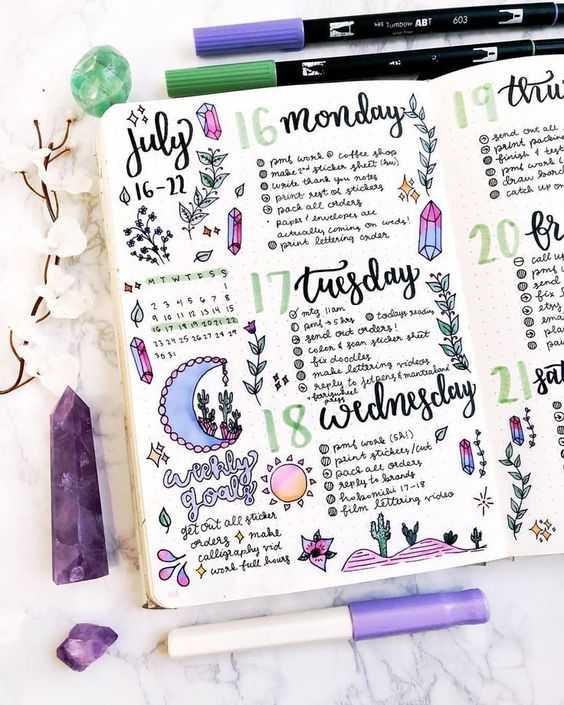 Tombow ABT 603
July
16-22
M T W T F S S
1
2 3 4 5 6 7 8
9 10 11 12 13 14 15
16 17 18 19 20 21 22
23 24 25 26 27 28 29
30 31
weekly
goals
get out all sticker
orders make
calligraphy vid
work full hours
16 monday
pms work @ coffee shop
make 2nd sticker sheet
write thank you notes
print rest of stickers
pack all orders
paper / envelopes are
actually coming on weds!
print lettering order
17 tuesday
mtg 11am
pms → 5 hrs
todays ready
send out orders!
color & scan sticker sheet
fix doodles
make lettering videos
reply to jetpens &
press
18 wednesday
pms work (5h!)
print stickers/cut
pack all orders
reply to brands
17-18
film lettering video
19 thu
send out all
print packin
finish & test
pms work
draw bord
catch up on
20 fr
call up
pms wo
send
fix
etsy
email
print
21 sat